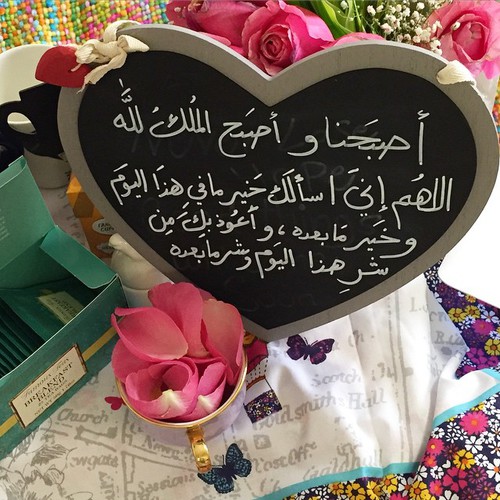 أصبحنا و أصبح الملك لله
اللهم إني اسألك خير ما في هذا اليوم
و خير ما بعده ، و أعوذ بك من
شر هذا اليوم و شر ما بعده
BREAKFAST
BLEND
Scotch
Goldsmiths Hall
Church
Post Office